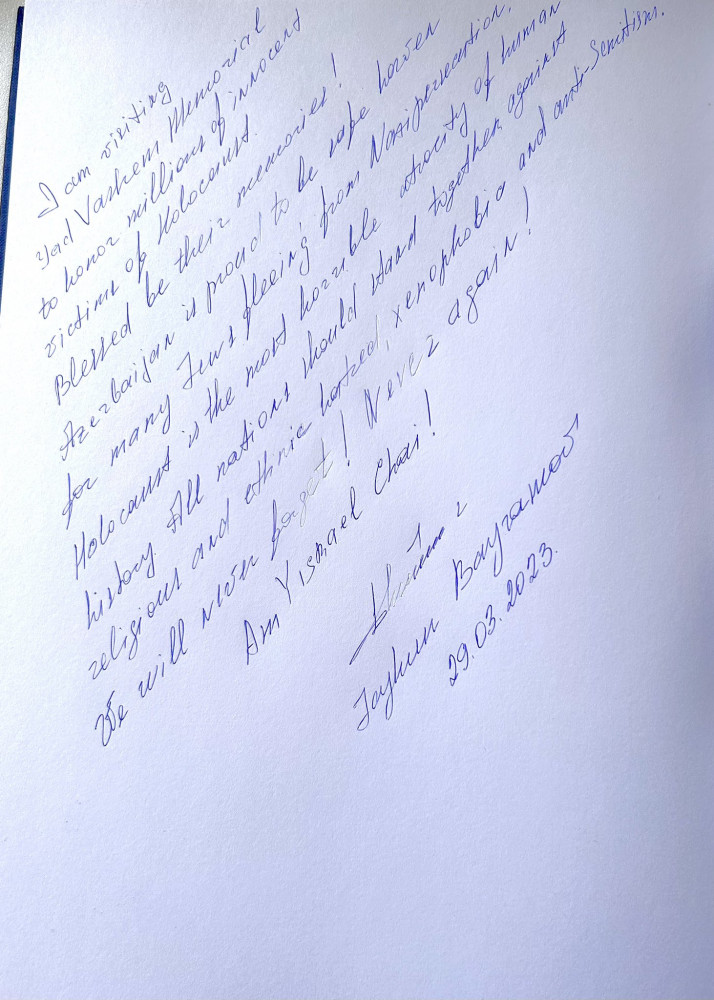 I am visiting
Yad Vashem Memorial
to honor millions of innocent
victims of Holocaust.
Blessed be their memories!
Azerbaijan is proud to be safe haven
for many Jews fleeing from Nazi persecution.
Holocaust is the most horrible atrocity of human
history. All nations should stand together, against
religious and ethnic hatred, xenophobia and anti-Semitism.
We will never forget! Never again!
Am Yisrael Chai!
Jeyhun Bayramov
29.03.2023.